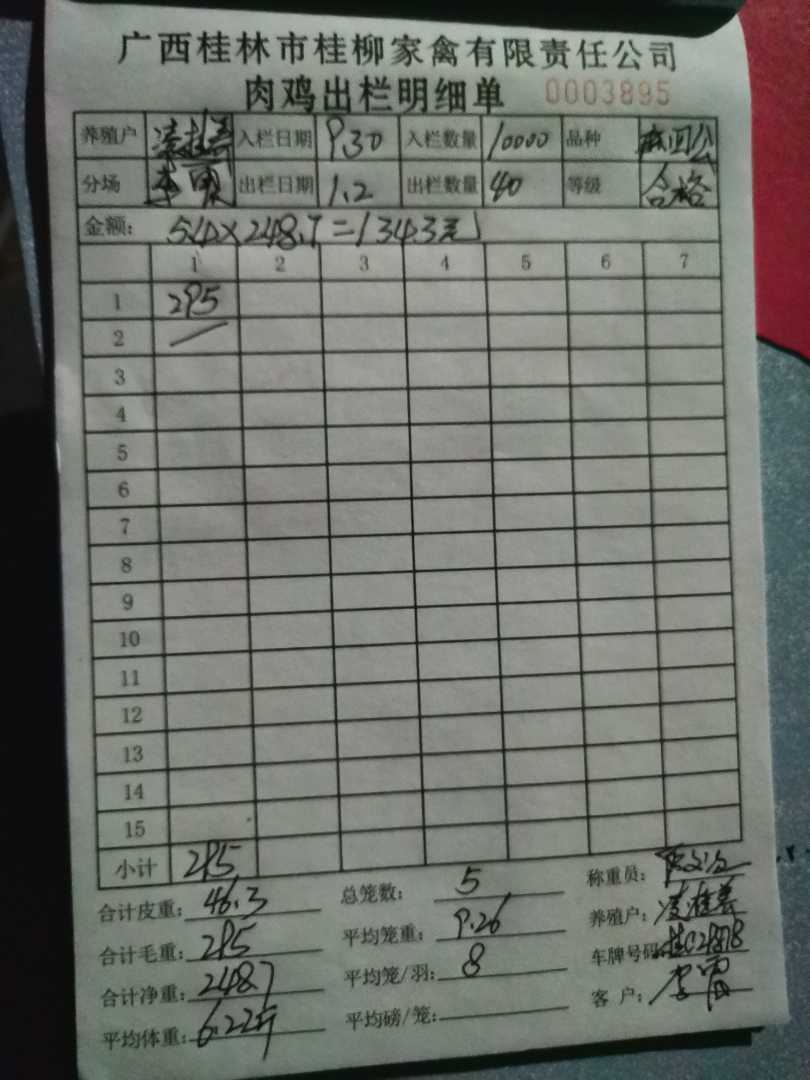 广西桂林市桂柳家禽有限责任公司
肉鸡出栏明细单 0003895
养殖户 凌桂养 入栏日期 9.30 入栏数量 10000 品种
分场 李勇 出栏日期 1.2 出栏数量 40 等级 合格
金额: 5.4×248.7=1343元
1 2 3 4 5 6 7
1 295
2
3
4
5
6
7
8
9
10
11
12
13
14
15
小计 295
合计皮重: 46.3 总笼数: 5 称重员:
合计毛重: 295 平均笼重: 9.26 养殖户: 凌桂养
合计净重: 248.7 平均笼/羽: 8 车牌号码:
平均体重: 6.22斤 平均磅/笼: 客户: 李勇